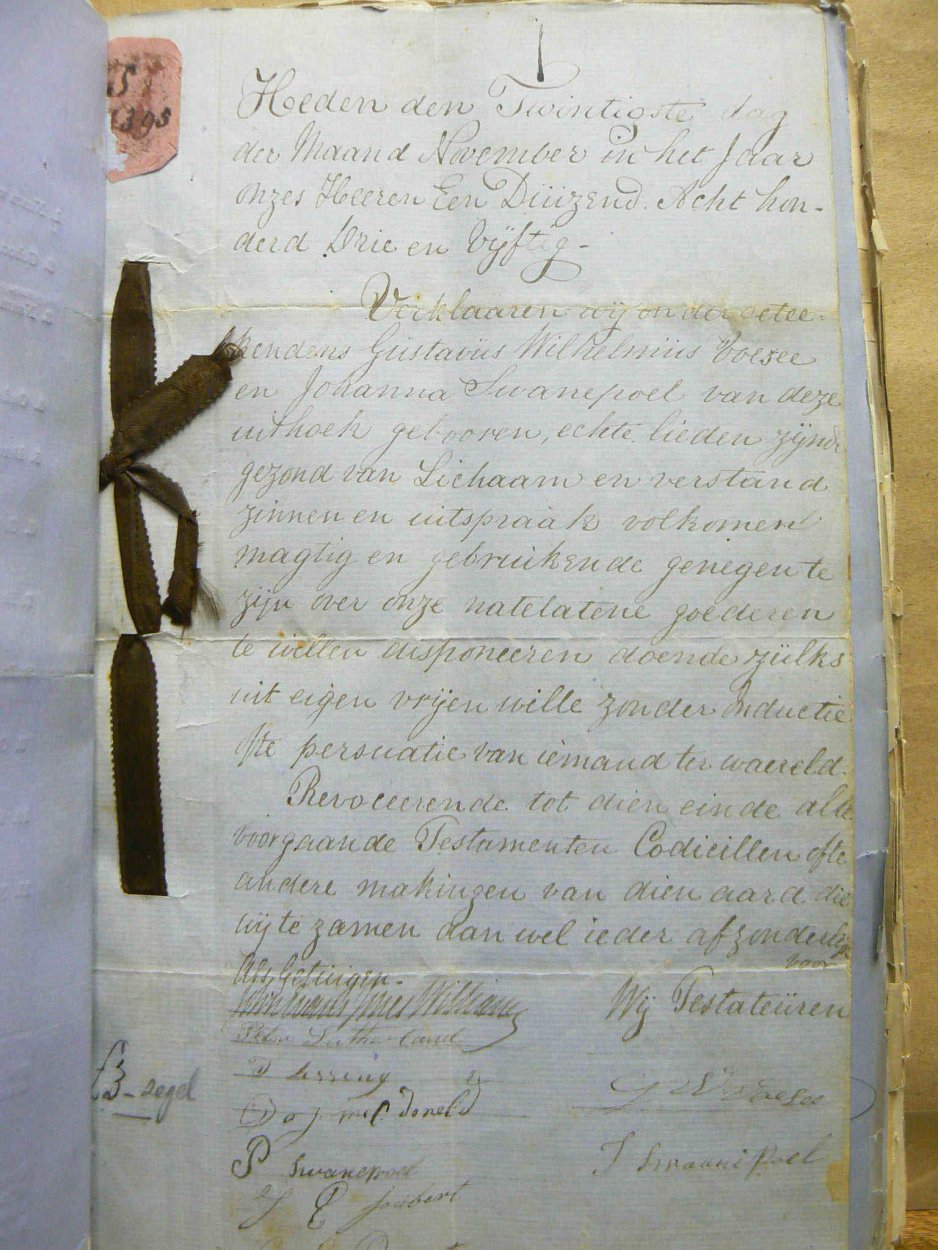 1
Heden den Twintigste dag
der Maand November in het Jaar
onzes Heeren Een Duizend. Acht hon-
derd Drie en Vijftig-
Verklaaren wij ondergetee-
kendens Gustavus Wilhelmus Voesee
en Johanna Swanepoel van deze
uithoek gebooren, echte lieden zijnde
gezond van Lichaam en verstand
zinnen en uitspraak volkomen
magtig en gebruikende genegen te
zijn over onze natelatene goederen
te willen disponeeren doende zulks
uit eigen vrijen wille zonder inductie
ofte persuatie van iemand ter waereld.
Revoceerende tot dien einde alle
voorgaande Testamenten Codicillen ofte
andere makingen van dien aard die
wij te zamen dan wel ieder afzonderlijk
voor
Als Getuigen-
John Evans Jones Williams
Lutherland
P Lessing
D J Mc Doneld
P Swanepoel
J P Joubert
Wij Testateuren
J Swaanepoel
£3-segel
1395